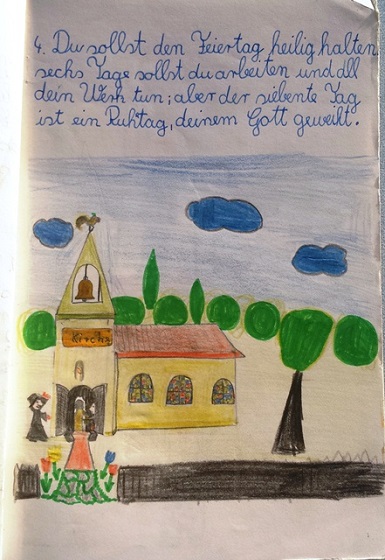 4. Du sollst den Feiertag heilig halten
sechs Tage sollst du arbeiten und all
dein Werk tun; aber der siebente Tag
ist ein Ruhtag, deinem Gott geweiht.
Kirche